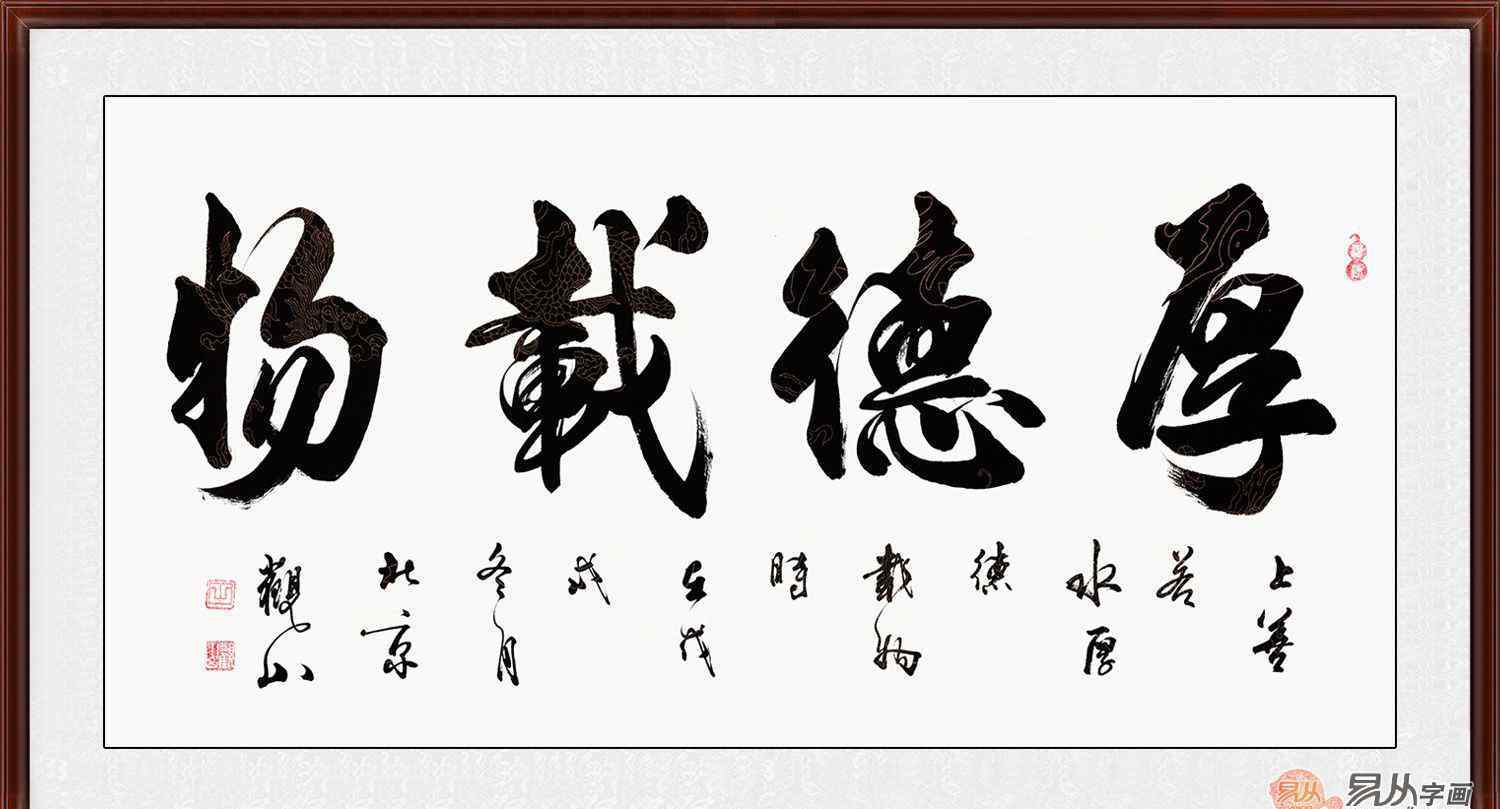 厚德載物
上善
若
水厚
德
載物
時
在戊
戌
冬月
北京
觀山
易从
易从字画